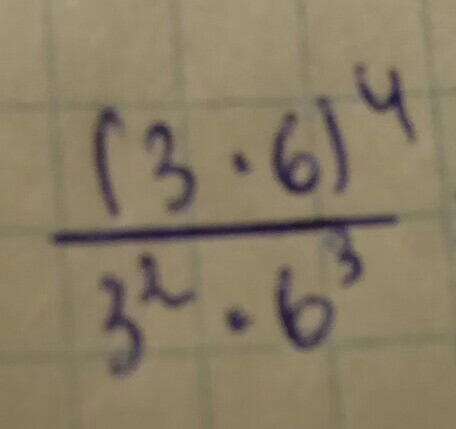 (3 · 6)⁴
3² · 6³